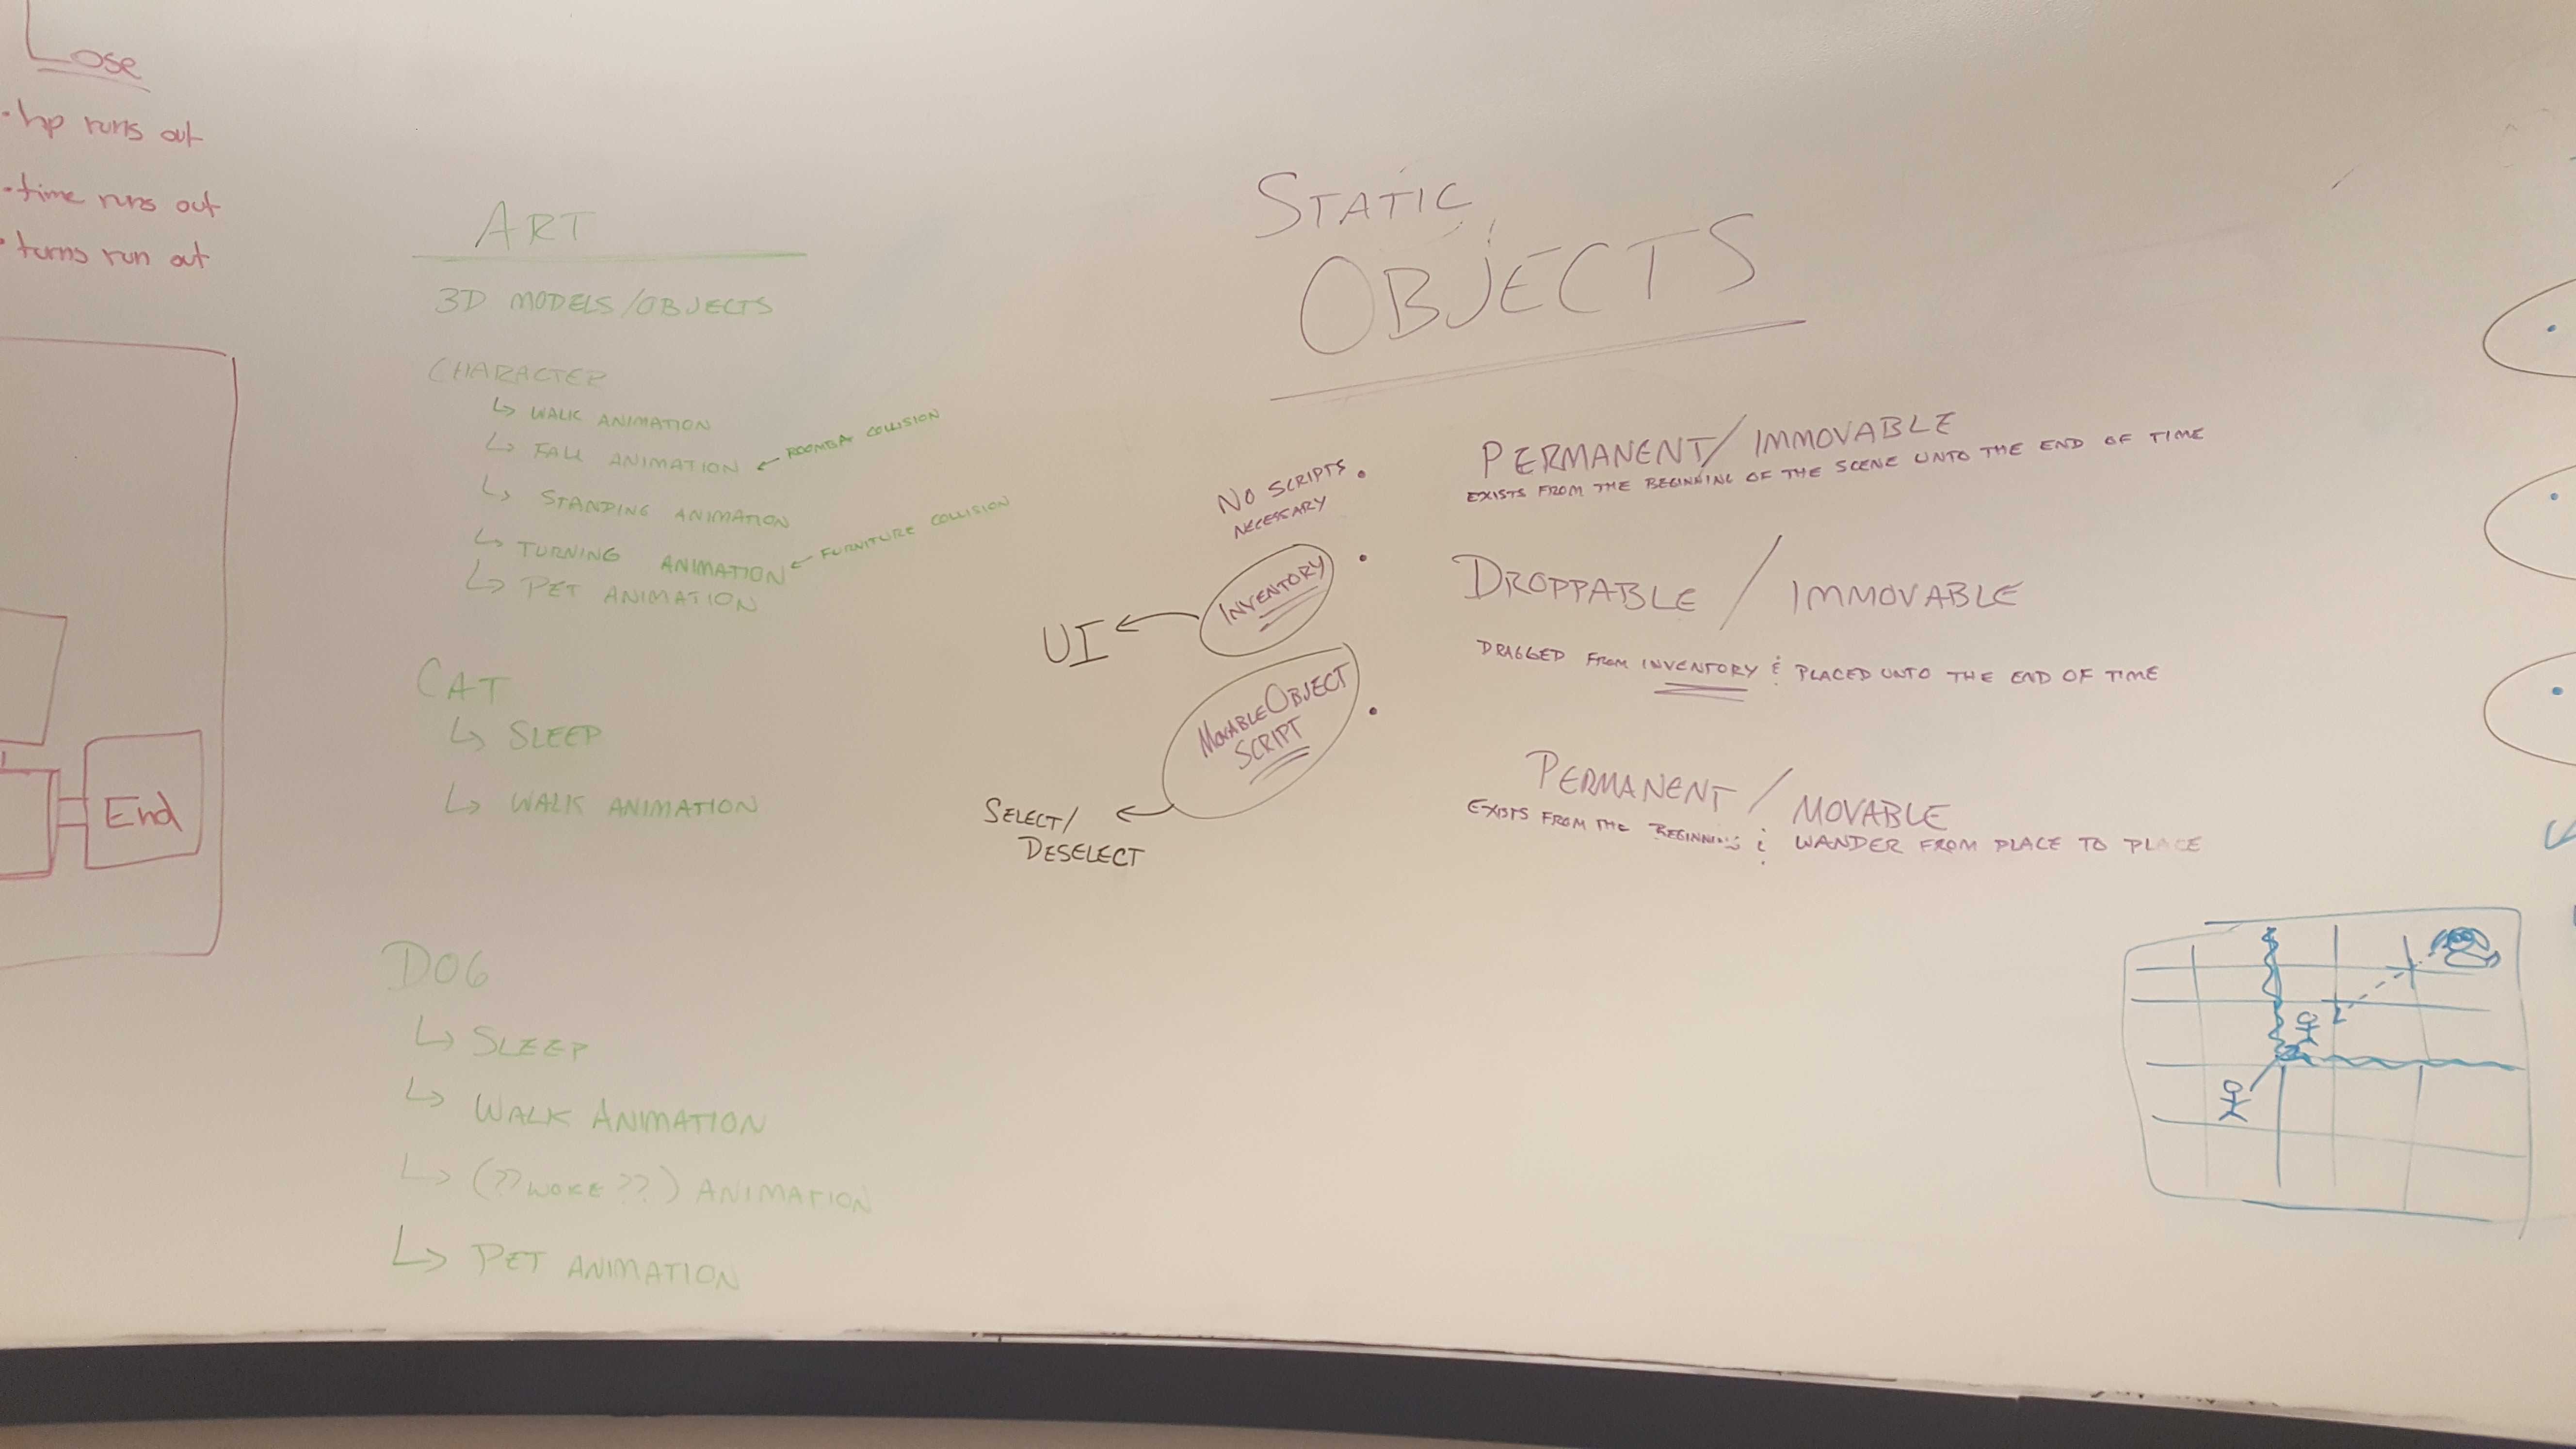 Lose
• hp runs out
• time runs out
• turns run out
End
ART
3D MODELS/OBJECTS
CHARACTER
↳ WALK ANIMATION
↳ FALL ANIMATION ← ROOMBA COLLISION
↳ STANDING ANIMATION
↳ TURNING ANIMATION ← FURNITURE COLLISION
↳ PET ANIMATION
CAT
↳ SLEEP
↳ WALK ANIMATION
DOG
↳ SLEEP
↳ WALK ANIMATION
↳ (??WOKE??) ANIMATION
↳ PET ANIMATION
STATIC
OBJECTS
NO SCRIPTS
NECESSARY
• PERMANENT/IMMOVABLE
EXISTS FROM THE BEGINNING OF THE SCENE UNTO THE END OF TIME
UI ← INVENTORY
• DROPPABLE / IMMOVABLE
DRAGGED FROM INVENTORY & PLACED UNTO THE END OF TIME
MOVABLEOBJECT
SCRIPT
SELECT/
DESELECT
• PERMANENT / MOVABLE
EXISTS FROM THE BEGINNING & WANDER FROM PLACE TO PLACE